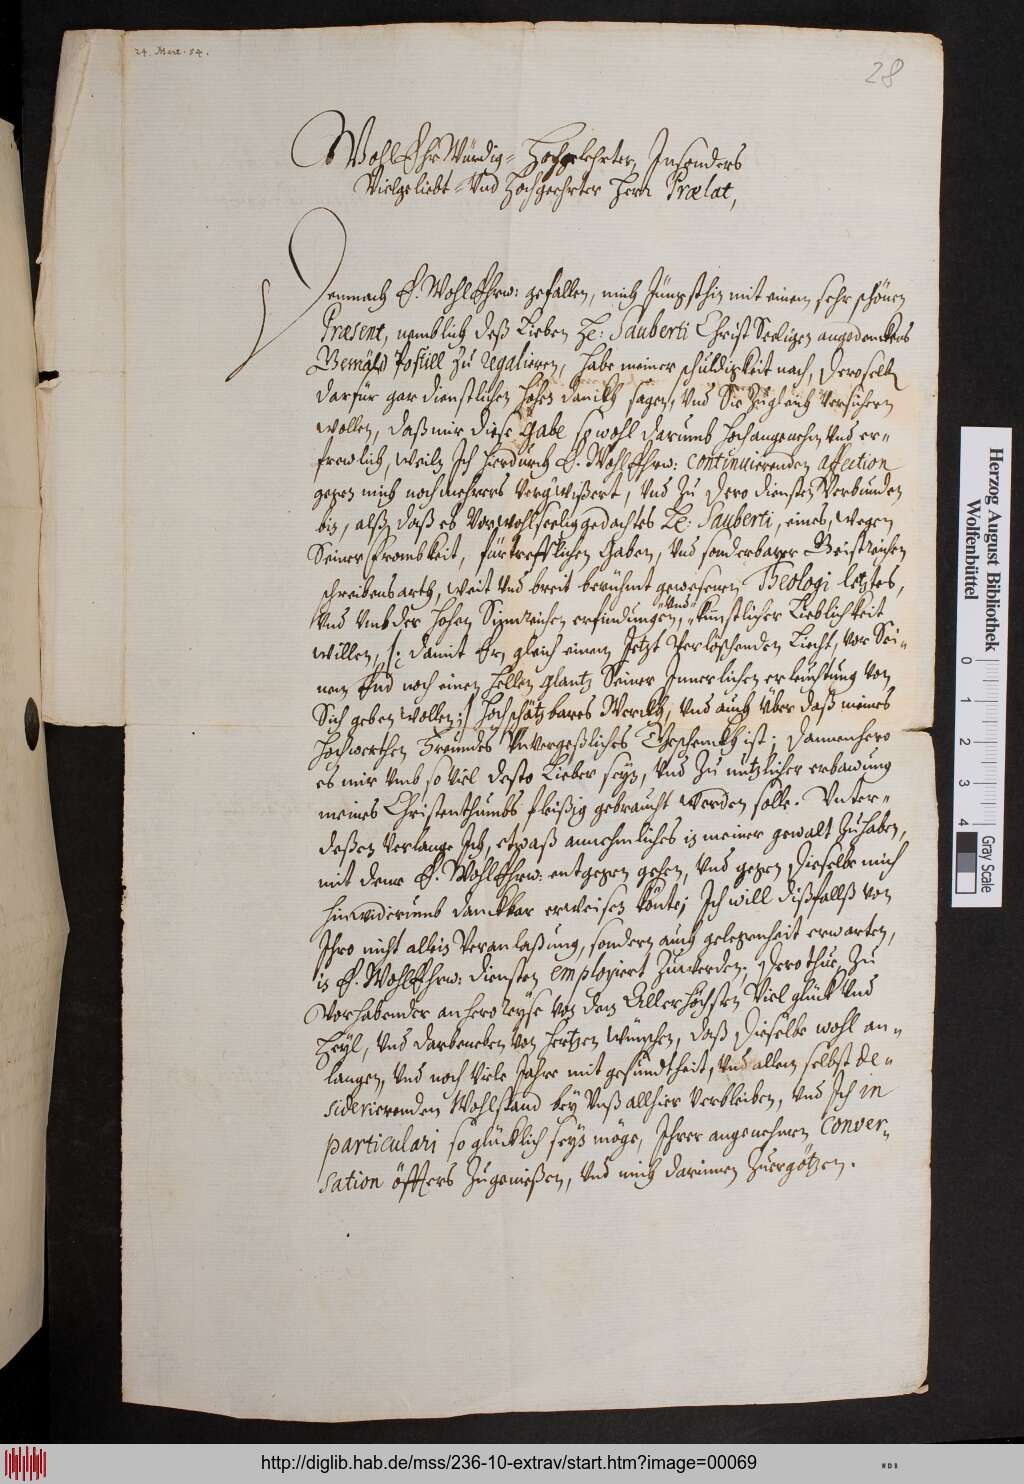 24. Mart. 54.
28
WohlEhrWürdig- Hochgelehrter, Insonders
Vielgeliebt- Und Hochgeehrter Herr Prælat,
Demnach E. WohlEhrw: gefallen, mich Jüngsthin mit einem sehr schönen
Præsent, nemblich deß Lieben H: Sauberti Christ Seeligen angedenckens
Postill zu regalieren, habe meiner schuldigkeit nach, Deroselben
darfür gar dienstlichen hohen danckh sagen, Und Sie zugleich Versichern
wollen, daß mir diese Gabe sowohl darumb hochangenehm Und er-
frewlich, weiln Ich hierdurch E. WohlEhrw: continuierenden affection
gegen mich noch mehrers Vergwißert, Und zu Dero diensten Verbunden
bin, alß daß es Vorwohlseelig gedachtes H: Sauberti, eines, wegen
Seiner Frombkeit, fürtrefflichen Gaben, Und sonderbarer Geistreichen
schreibensarth, weit Und breit berühmt gewesenen Theologi letztes,
Und Umb der hohen Sinnreichen erfindungen, Und künstlicher Lieblichkeit
willen, /: damit Er, gleich einem Jetzt Verlöschenden Liecht, vor Sei-
nem End noch einen hellen glantz Seiner Innerlichen erleuchtung von
Sich geben wollen :/ hochschätzbares Werckh, Und auch über daß meines
hochwerthen Freundes Unvergeßliches Geschenckh ist; Dannenhero
es mir Umb so viel desto Lieber seyn, Und zu nutzlicher erbawung
meines Christenthumbs fleißig gebraucht werden solle. Unter-
deßen Verlange Ich, etwaß annehmliches in meiner gewalt zuhaben,
mit deme E. WohlEhrw: entgegen gehen, Und gegen Dieselbe mich
hinwiderumb danckbar erweisen könte; Ich will dißfallß von
Ihro nicht allein Veranlaßung, sondern auch gelegenheit erwarten,
in E. WohlEhrw: diensten employiert zuwerden; Dero thue, zu
Vorhabender anhero reyse von dem Allerhöchsten Viel glück Und
Heyl, Und darbeneben von Hertzen wünschen, daß Dieselbe wohl an-
langen, Und noch viele Jahre mit gesundtheit, Und allem selbst de-
siderierenden Wohlstand bey Unß allhier Verbleiben, Und Ich in
particulari so glücklich seyn möge, Ihrer angenehmen Conver-
sation öffters zugenießen, Und mich darinnen zuergötzen.
Herzog August Bibliothek
Wolfenbüttel
0 1 2 3 4
Gray Scale
http://diglib.hab.de/mss/236-10-extrav/start.htm?image=00069
WDB